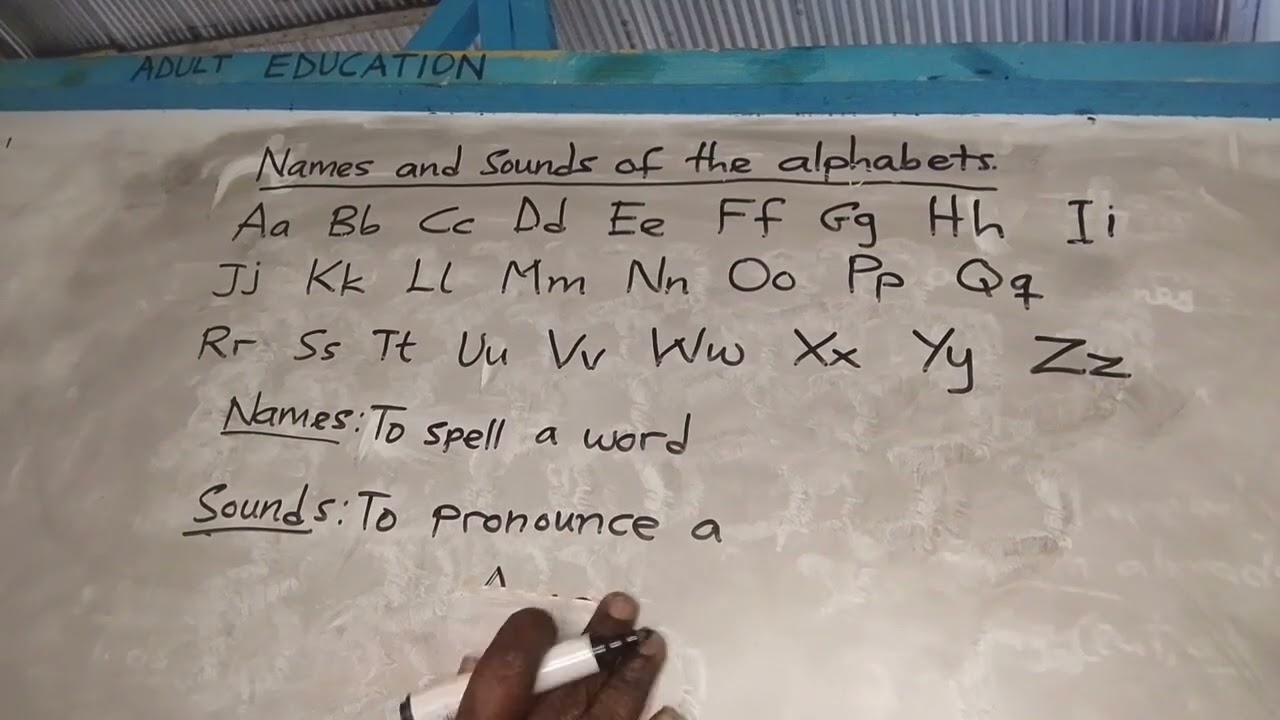 ADULT EDUCATION
Names and Sounds of the alphabets.
Aa Bb Cc Dd Ee Ff Gg Hh Ii
Jj Kk Ll Mm Nn Oo Pp Qq
Rr Ss Tt Uu Vv Ww Xx Yy Zz
Names: To spell a word
Sounds: To pronounce a